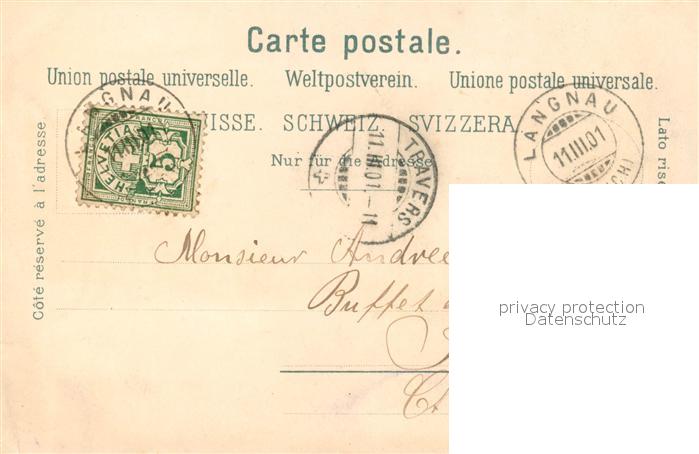 Carte postale.
Union postale universelle. Weltpostverein. Unione postale universale.
SUISSE. SCHWEIZ. SVIZZERA.
Nur für die Adresse
Côté réservé à l'adresse
Lato rise
LANGNAU
HELVETIA
FRANCO
5
TRAVERS
11.III.01.-11
LANGNAU
11.III.01
Monsieur Andree
Buffet
privacy protection
Datenschutz